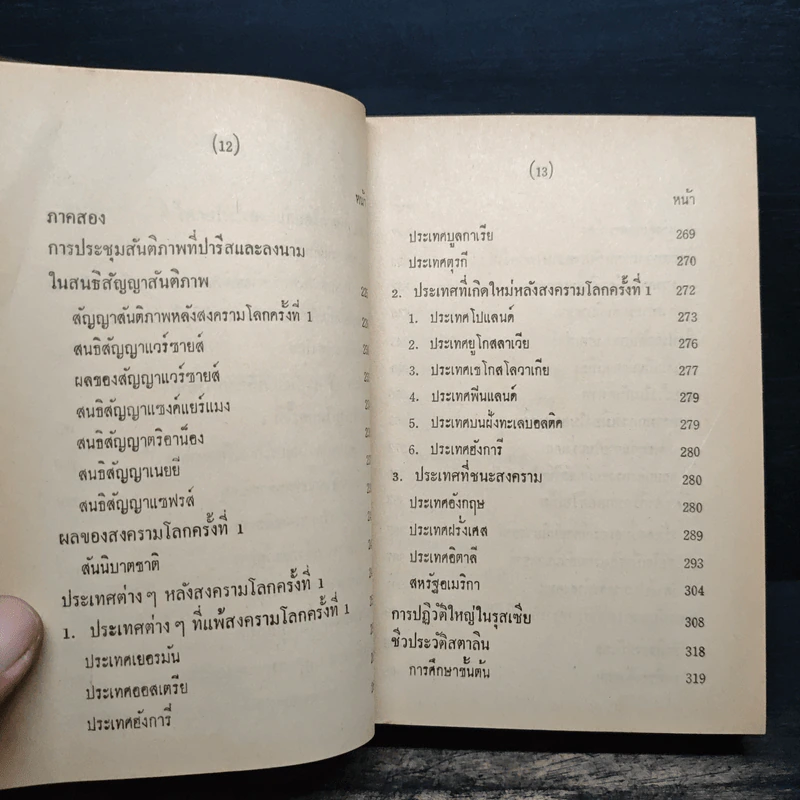 (12)
หน้า
ภาคสอง
การประชุมสันติภาพที่ปารีสและลงนาม
ในสนธิสัญญาสันติภาพ
สัญญาสันติภาพหลังสงครามโลกครั้งที่ 1
สนธิสัญญาแวร์ซายส์
ผลของสัญญาแวร์ซายส์
สนธิสัญญาแซงค์แยร์แมง
สนธิสัญญาตริอาน็อง
สนธิสัญญาเนยยี
สนธิสัญญาแซฟรส์
ผลของสงครามโลกครั้งที่ 1
สันนิบาตชาติ
ประเทศต่าง ๆ หลังสงครามโลกครั้งที่ 1
1. ประเทศต่าง ๆ ที่แพ้สงครามโลกครั้งที่ 1
ประเทศเยอรมัน
ประเทศออสเตรีย
ประเทศฮังการี
(13)
หน้า
ประเทศบูลกาเรีย 269
ประเทศตุรกี 270
2. ประเทศที่เกิดใหม่หลังสงครามโลกครั้งที่ 1 272
1. ประเทศโปแลนด์ 273
2. ประเทศยูโกสลาเวีย 276
3. ประเทศเชโกสโลวาเกีย 277
4. ประเทศฟินแลนด์ 279
5. ประเทศบนฝั่งทะเลบอลติค 279
6. ประเทศฮังการี 280
3. ประเทศที่ชนะสงคราม 280
ประเทศอังกฤษ 280
ประเทศฝรั่งเศส 289
ประเทศอิตาลี 293
สหรัฐอเมริกา 304
การปฏิวัติใหญ่ในรุสเซีย 308
ชีวประวัติสตาลิน 318
การศึกษาชั้นต้น 319